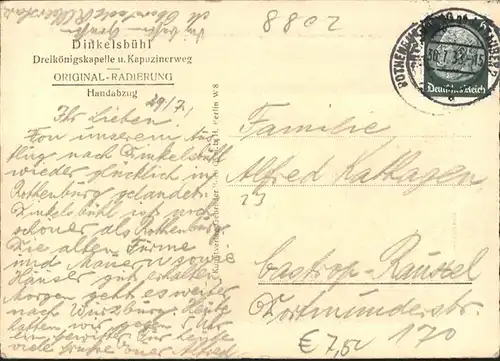 8802
Dinkelsbühl
Dreikönigskapelle u. Kapuzinerweg
ORIGINAL-RADIERUNG
Handabzug
29/7.
Ihr Lieben!
Von unserem Aus
flug nach Dinkelsbühl
wieder glücklich in
Rothenburg gelandet.
Dinkelsbühl ist noch
schöner als Rothenburg
Die alten Türme
und Mauern sowie
Häuser gut erhalten
Morgen geht es weiter
nach Würzburg. Heute
hatten wir gegen 7 Uhr
ein Gewitter. Für heute
viele Grüße Euer Alfred
Familie
Alfred Kathagen
23
Castrop-Rauxel
Dortmunderstr.
170
€ 7,50
Deutsches Reich
Berlin W 8